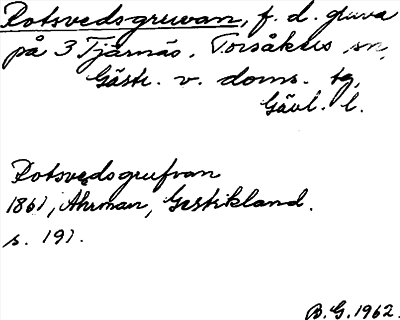 Rotsvedsgruvan, f. d. gruva
på 3 Tjärnäs, Torsåkers sn,
Gästr. v. doms. tg,
Gävl. l.
Rotsvedsgrufvan
1861, Ahrman, Gestrikland.
s. 191.
B.G. 1962.